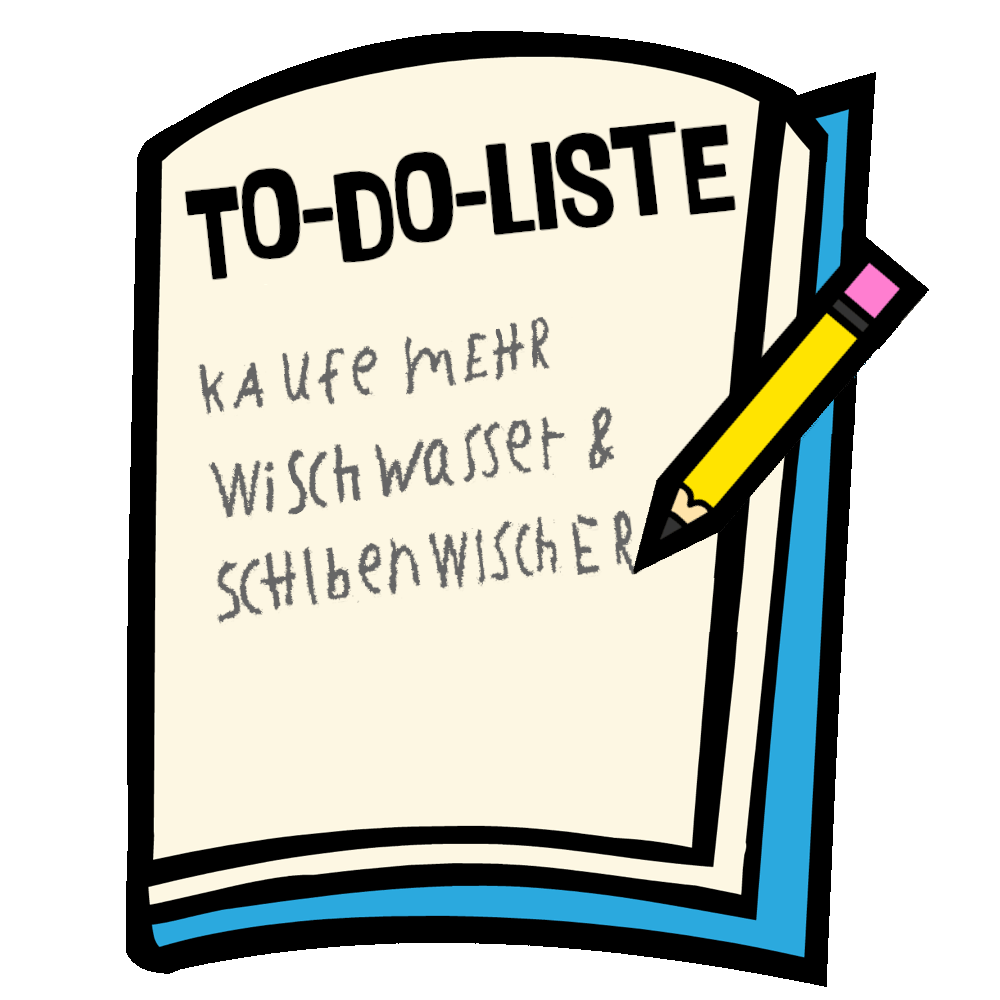 TO-DO-LISTE
KAUfe mEHR
WiSCh Wasser &
SCHIbenWISChER